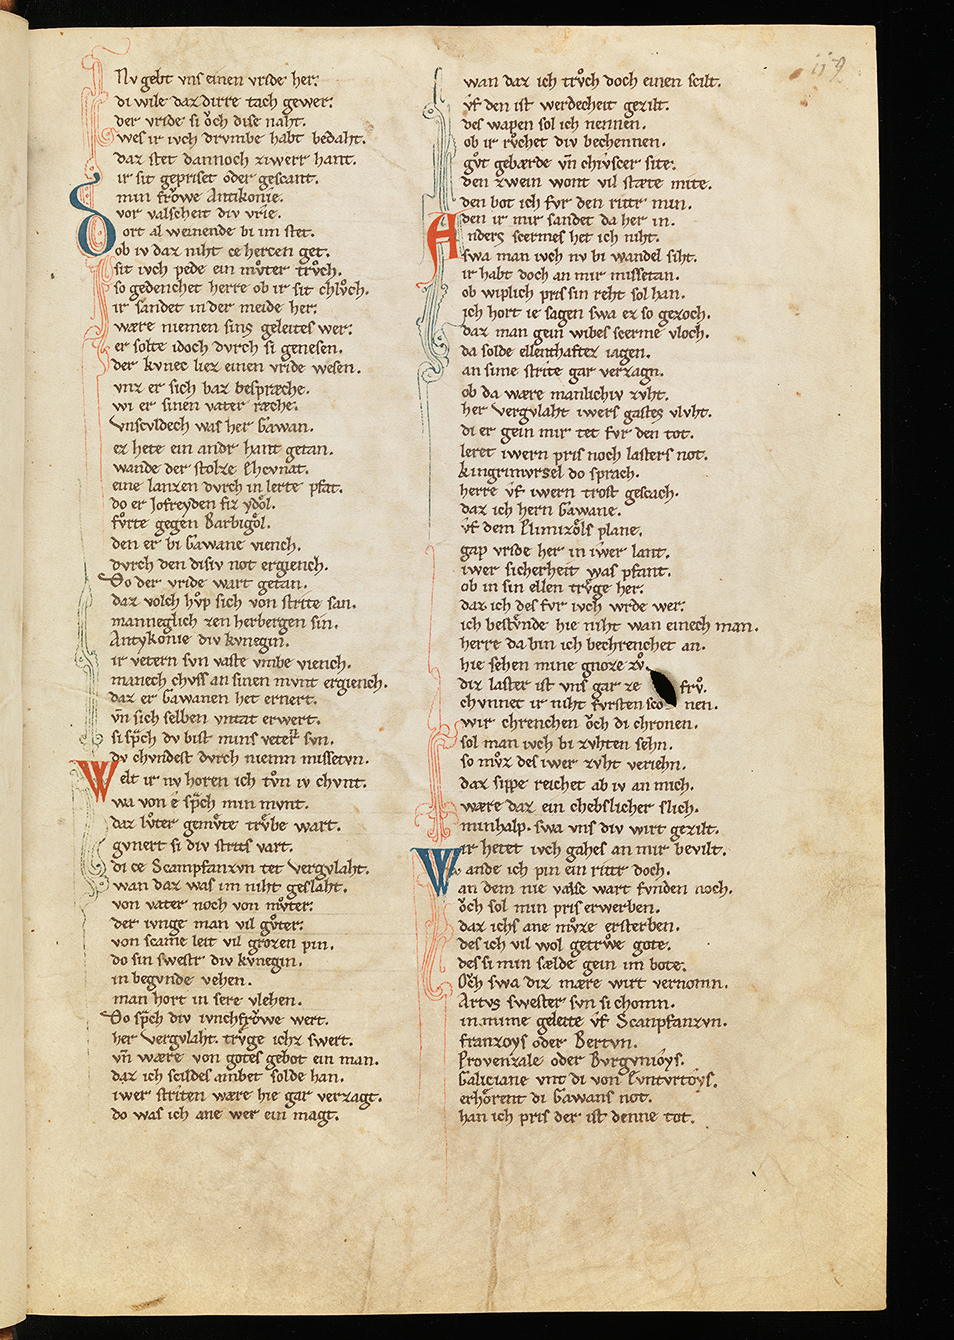 119
Nv gebt vns einen vride her.
di wile daz dirre tach gewer.
der vride si ǒch dise naht.
wes ir ivch drvmbe habt bedaht.
daz stet dannoch ziwerr hant.
ir sit gepriset oder gescant.
min frǒwe Antikonie.
vor valscheit div vrie.
Dort al weinende bi im stet.
ob iv daz niht ce hercen get.
sit ivch pede ein mv̊ter trv̊ch.
so gedenchet herre ob ir sit chlv̊ch.
ir sandet in der meide her.
wære niemen sins geleites wer.
er solte idoch dvrch si genesen.
der kvnec liez einen vride wesen.
vnz er sich baz bespræche.
wi er sinen vater ræche.
Vnscvldech was her Gawan.
ez hete ein andr hant getan.
wande der stolze Ehcvnat.
eine lanzen dvrch in lerte pfat.
do er Jofreyden fiz ydǒl.
fv̊rte gegen Barbigǒl.
den er bi Gawane viench.
dvrch den disiv not ergiench.
Do der vride wart getan.
daz volch hv̊p sich von strite san.
manneglich zen herbergen sin.
Antykonie div kvnegin.
ir vetern svn vaste vmbe viench.
manech chvss an sinen mvnt ergiench.
daz er Gawanen het ernert.
vn̄ sich selben vntat erwert.
si sp̄ch dv bist mins veter svn.
dv chvndest dvrch niemn missetvn.
Welt ir nv horen ich tv̊n iv chvnt.
wa von e sp̄ch min mvnt.
daz lv̊ter gemv̊te trv̊be wart.
gvnert si div strits vart.
di ce Scampfanzvn tet Vergvlaht.
wan daz was im niht geslaht.
von vater noch von mv̊ter.
der ivnge man vil gv̊ter.
von scame leit vil grozen pin.
do sin swestr div kvnegin.
in begvnde vehen.
man hort in sere vlehen.
Do sp̄ch div ivnchfrǒwe wert.
her Vergvlaht. trv̊ge ichz swert.
vn̄ wære von gotes gebot ein man.
daz ich scildes ambet solde han.
iwer striten wære hie gar verzagt.
do was ich ane wer ein magt.
wan daz ich trv̊ch doch einen scilt.
v̊f den ist werdecheit gezilt.
des wapen sol ich nennen.
ob ir rv̊chet div bechennen.
gv̊t gebærde vn̄ chivscer site.
den zwein wont vil stæte mite.
den bot ich fvr den rittr min.
den ir mir sandet da her in.
Anders scermes het ich niht.
swa man ivch nv bi wandel siht.
ir habt doch an mir missetan.
ob wiplich pris sin reht sol han.
ich hort ie sagen swa ez so gezoch.
daz man gein wibes scerme vloch.
da solde ellenthaftez iagen.
an sime strite gar verzagn.
ob da wære manlichiv zvht.
her Vergvlaht iwers gastes vlvht.
di er gein mir tet fvr den tot.
leret iwern pris noch lasters not.
kingrimvrsel do sprach.
herre v̊f iwern trost gescach.
daz ich hern Gawane.
v̊f dem Plimizǒls plane.
gap vride her in iwer lant.
iwer sicherheit was pfant.
ob in sin ellen trv̊ge her.
daz ich des fvr ivch wrde wer.
ich bestv̊nde hie niht wan einech man.
herre da bin ich bechrenchet an.
hie sehen mine gnoze zv̊.
diz laster ist vns gar ze frv̊.
chvnnet ir niht fvrsten sco nen.
wir chrenchen ǒch di chronen.
sol man ivch bi zvhten sehn.
so mv̊z des iwer zvht veriehn.
daz sippe reichet ab iv an mich.
wære daz ein chebslicher slich.
minhalp. swa vns div wirt gezilt.
Wir hetet ivch gahes an mir bevilt.
wande ich pin ein rittr doch.
an dem nie valsc wart fvnden noch.
ǒch sol min pris erwerben.
daz ichs ane mv̊ze ersterben.
des ich vil wol getrv̊we gote.
des si min sælde gein im bote.
Ǒch swa diz mære wirt vernomn.
Artvs swester svn si chomn.
in mime geleite v̊f Scanpfanzvn.
franzoys oder Bertvn.
Provenzale oder Bvrgvnioys.
Galiciane vnt di von Pvntvrtoys.
erhǒrent di Gawans not.
han ich pris der ist denne tot.